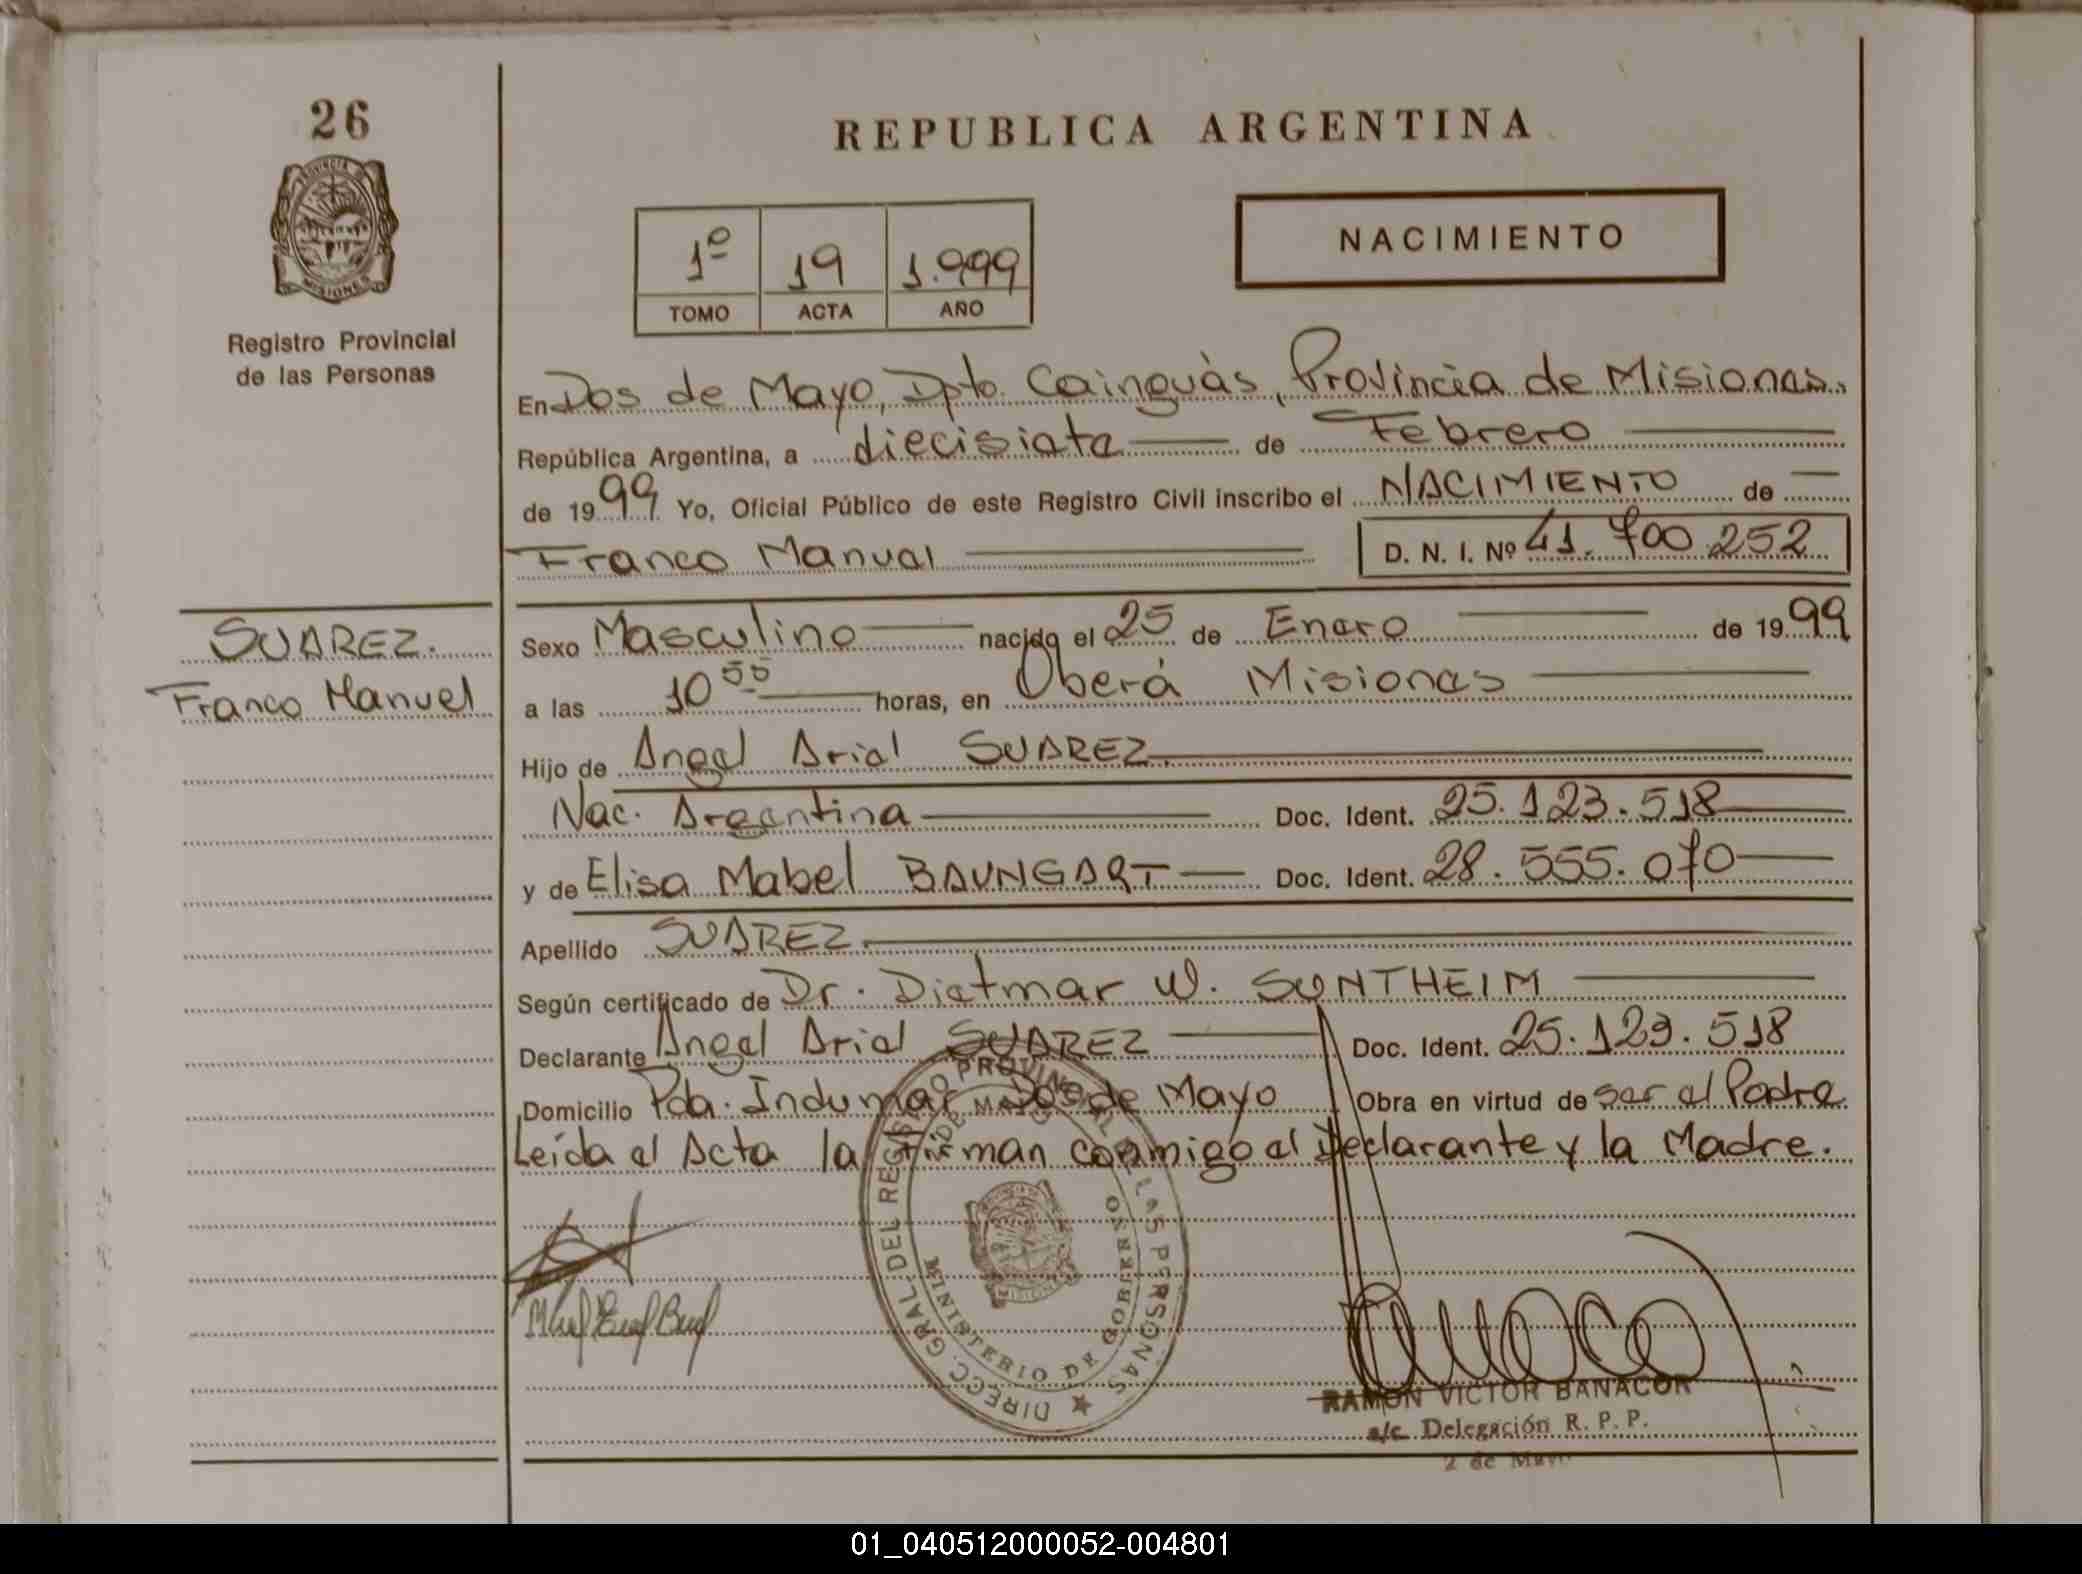 26
REPUBLICA ARGENTINA
PROVINCIA DE
MISIONES
Registro Provincial
de las Personas
1º 19 1.999
TOMO ACTA AÑO
NACIMIENTO
En Dos de Mayo, Dpto. Cainguàs, Provincia de Misiones.
República Argentina, a diecisiete de Febrero
de 1999 Yo, Oficial Público de este Registro Civil inscribo el NACIMIENTO de
Franco Manuel D. N. I. Nº 41.700.252
SUAREZ.
Franco Manuel
Sexo Masculino nacido el 25 de Enero de 1999
a las 10 55 horas, en Oberá Misiones
Hijo de Angel Ariel SUAREZ.
Nac. Argentina Doc. Ident. 25.123.518
y de Elisa Mabel BAUNGART Doc. Ident. 28.555.070
Apellido SUAREZ.
Según certificado de Dr. Dietmar W. SONTHEIM
Declarante Angel Ariel SUAREZ Doc. Ident. 25.123.518
Domicilio Pda. Indumar Dos de Mayo Obra en virtud de ser el Padre
Leída el Acta la firman conmigo el Declarante y la Madre.
DIRECC. GRAL. DEL REGISTRO PROVINCIAL DE LAS PERSONAS
MINISTERIO DE GOBIERNO
MISIONES
RAMON VICTOR BANACOR
a/c Delegación R. P. P.
2 de Mayo
01_040512000052-004801